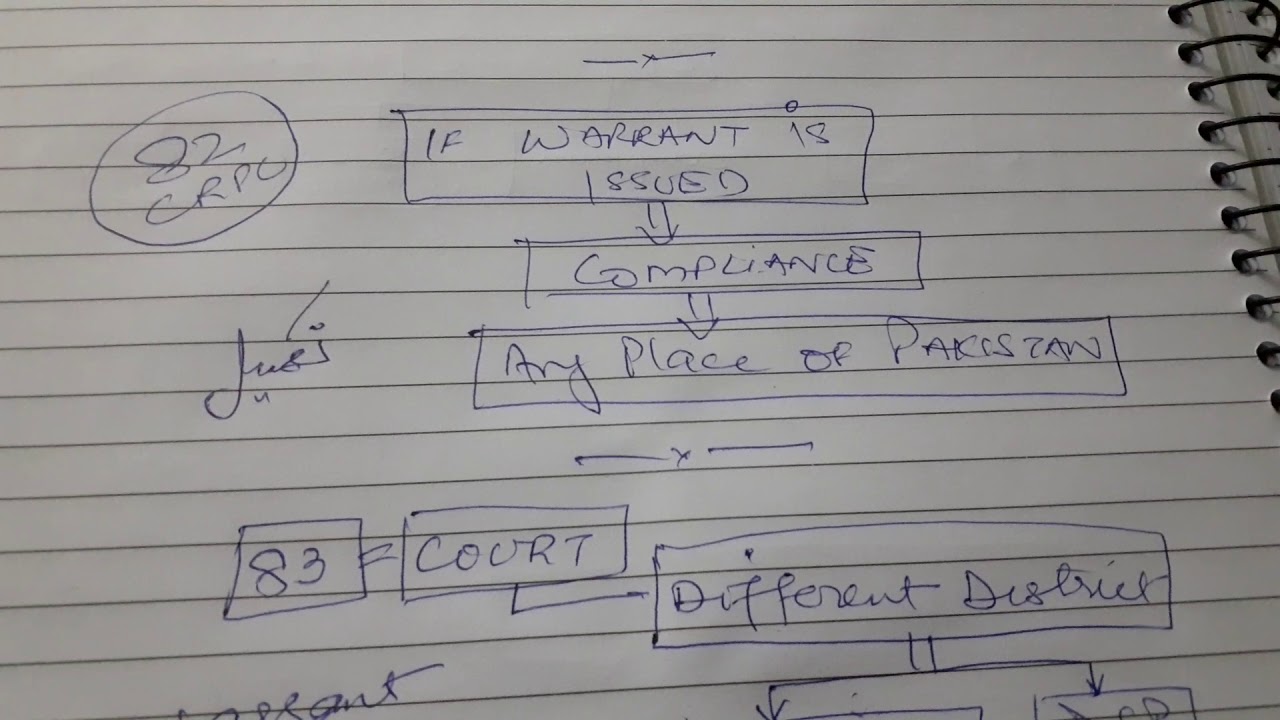 82
CRPC
IF WARRANT IS
ISSUED
COMPLIANCE
Any Place OF PAKISTAN
83 = COURT
Different District